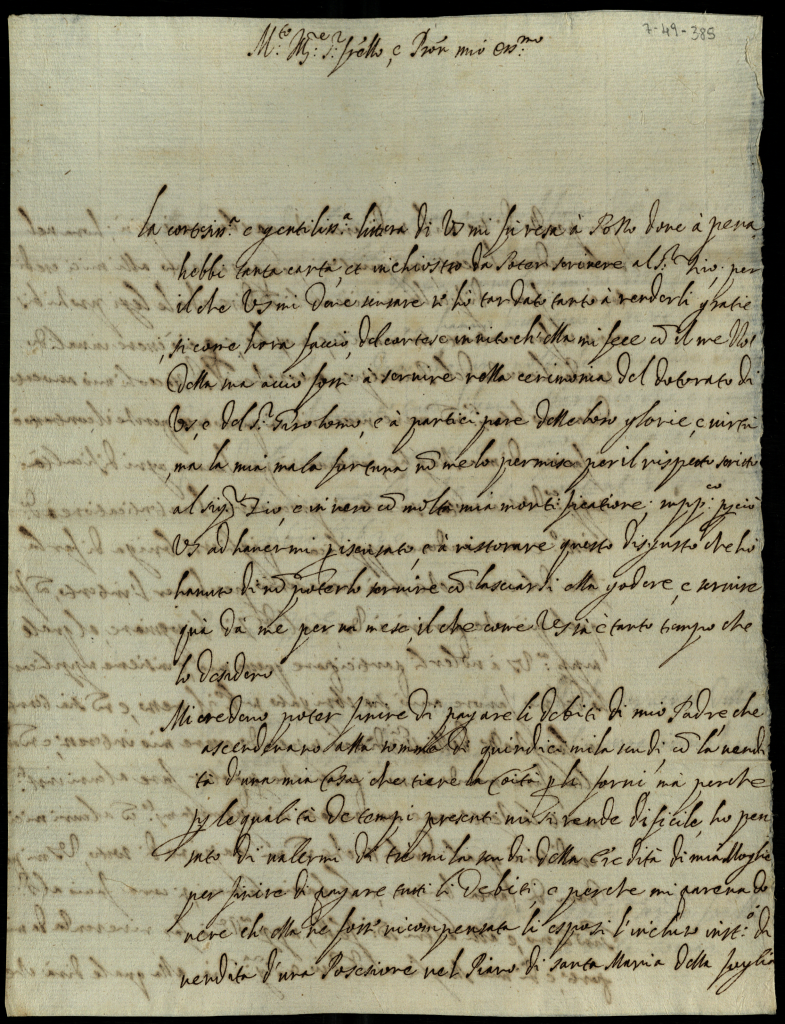 7-49-385
M.to Ill.re S.r frello, e Pron mio oss.mo
la cortesiss.a e gentiliss.a lettera di VS mi fù resa à dove à pena
hebbi tanta carta, et inchiostro da poter scrivere al S.r Zio, per
il che VS mi deve scusare si hò tardato tanto à renderli gratie
si come hora faccio, del cortese invito ch'ella mi fece cō il me
della ma acciò fossi à servire nella cerimonia del dotorato di
VS, e del S.r Girolomo, e à participare delle loro glorie, e virtù
ma la mia mala fortuna nō me lo permise per il rispetto scritto
al Sig.r Zio, e in vero cō molta mia mortificatione; supp.co perciò
VS ad havermi per iscusato, e à ristorare questo disgusto che hò
havuto di nō poterlo servire cō lasciarsi ella godere, e servire
quà da me per un mese, il che come VS sà è tanto tempo che
lo desidero
Mi credevo poter finire di pagare li debiti di mio Padre che
ascendevano alla somma di quindici mila scudi cō la vendi
tà d'una mia Casa che tiene la Coità p li forni, mà perche
p le qualità de tempi presenti mi si rende dificile, ho pen
sato di valermi di tre mila scudi della Eredità di mia Moglie
per finire di pagare tutti li debiti, e perche mi pareva do
vere ch'ella ne foss.e ricompensata li esposi l'incluso inst.o di
vendita d'una Posesione nel Piano di santa Maria della